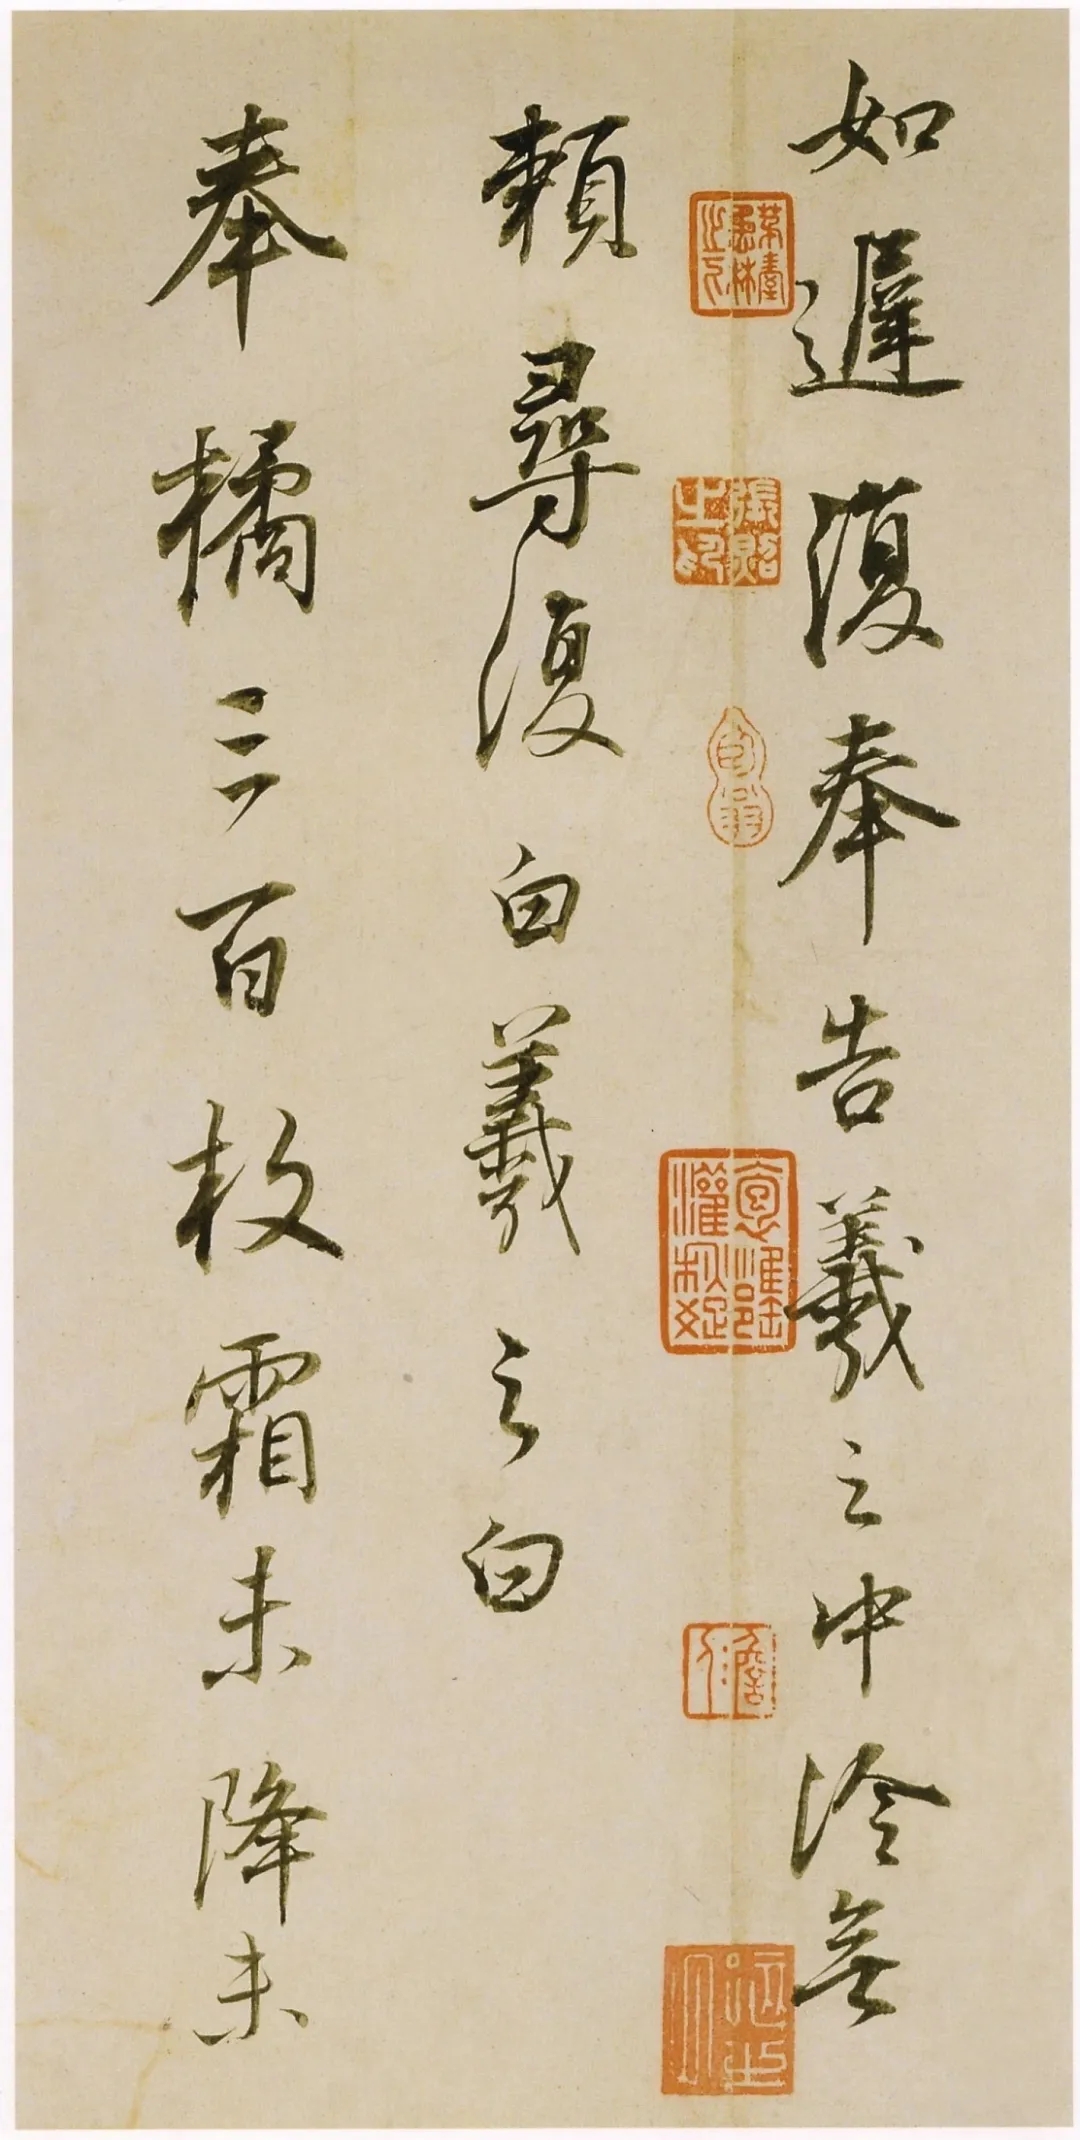 如遲復奉告羲之中冷無
張照之印
賴尋復白羲之白
奉橘三百枚霜未降未